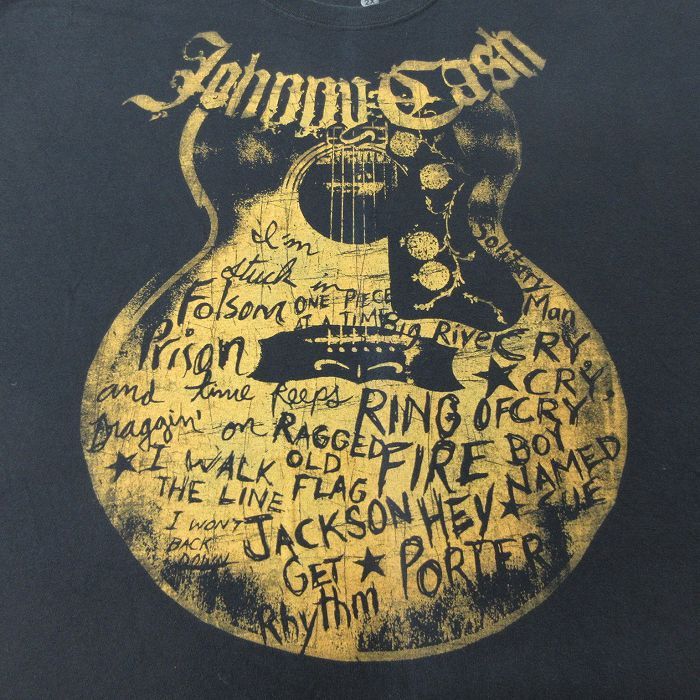 2X
Johnny Cash
I'm
stuck in
Folsom
Prison
and time keeps
Draggin' on
ONE PIECE
AT A TIME
Big River
Solitary
Man
CRY,
CRY,
CRY
RING OF
FIRE
RAGGED
OLD
FLAG
I WALK
THE LINE
BOY
NAMED
SUE
I WON'T
BACK
DOWN
JACKSON
HEY
PORTER
GET
Rhythm